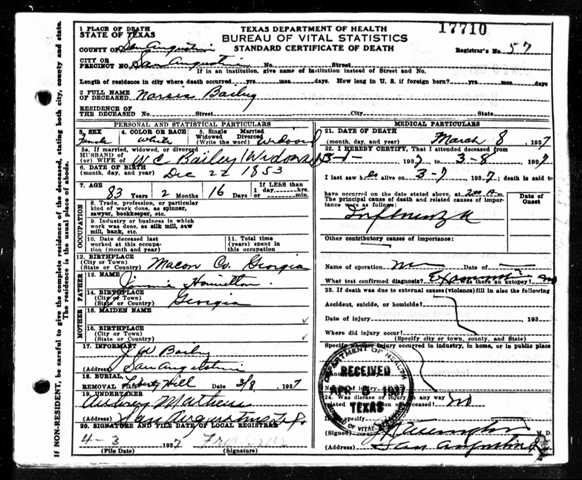 1 PLACE OF DEATH
STATE OF TEXAS
TEXAS DEPARTMENT OF HEALTH
BUREAU OF VITAL STATISTICS
STANDARD CERTIFICATE OF DEATH
17710
COUNTY OF San Augustine
Registrar's No. 57
CITY OR PRECINCT NO. San Augustine No. Street
If in an institution, give name of institution instead of Street and No.
Length of residence in city where death occurred, yrs. mos days. How long in U. S. if foreign born? yrs. mos. days
2 FULL NAME OF DECEASED Bailey
RESIDENCE OF THE DECEASED: Street No. Street City State
PERSONAL AND STATISTICAL PARTICULARS
3. SEX 4. COLOR OR RACE 5. Single Married Widowed Divorced (Write the word)
White Widowed
5a. If married, widowed, or divorced HUSBAND of or WIFE of W.C. Bailey
6. DATE OF BIRTH (month, day, year) Dec 22 1853
7. AGE 83 Years 2 Months 16 Days If LESS than 1 day, hrs. min.
OCCUPATION
8. Trade, profession, or particular kind of work done, as spinner, sawyer, bookkeeper, etc.
9. Industry or business in which work was done, as silk mill, saw mill, bank, etc.
10. Date deceased last worked at this occupation (month and year)
11. Total time (years) spent in this occupation
12. BIRTHPLACE (City or Town) (State or Country) Macon Co. Georgia
FATHER
13. NAME Hamilton
14. BIRTHPLACE (City or Town) (State or Country) Georgia
MOTHER
15. MAIDEN NAME
16. BIRTHPLACE (City or Town) (State or Country)
17. INFORMANT J W Bailey
(Address) San Augustine
18. BURIAL REMOVAL Liberty Hill 3/8 1937
19. UNDERTAKER Mathews
(Address) San Augustine Tx
20. SIGNATURE AND FILE DATE OF LOCAL REGISTRAR
4-3 1937
(File Date) (Signature)
MEDICAL PARTICULARS
21. DATE OF DEATH (month, day, year) March 8 1937
22. I HEREBY CERTIFY, That I attended deceased from
3-1- 1937 to 3-8 1937
I last saw h alive on 3-7 1937; death is said to
have occurred on the date stated above, at m.
The principal cause of death and related causes of importance were as follows: Date of Onset
Influenza
Other contributory causes of importance:
Name of operation no Date of
What test confirmed diagnosis? Was there an autopsy? no
23. If death was due to external causes (violence) fill in also the following
Accident, suicide, or homicide?
Date of injury 193
Where did injury occur?
(Specify city or town, county, and State)
Specify whether injury occurred in industry, in home, or in public place
Manner of injury
Nature of injury
24. Was disease or injury in any way related to occupation of deceased? no
If so, specify
(Signed) M. D.
(Address) San Augustine
DEPARTMENT OF HEALTH
RECEIVED
APR 5 1937
TEXAS
BUREAU OF VITAL STATISTICS
IF NON-RESIDENT, be careful to give the complete residence of the deceased, stating both city, county and state. The residence is the usual place of abode.